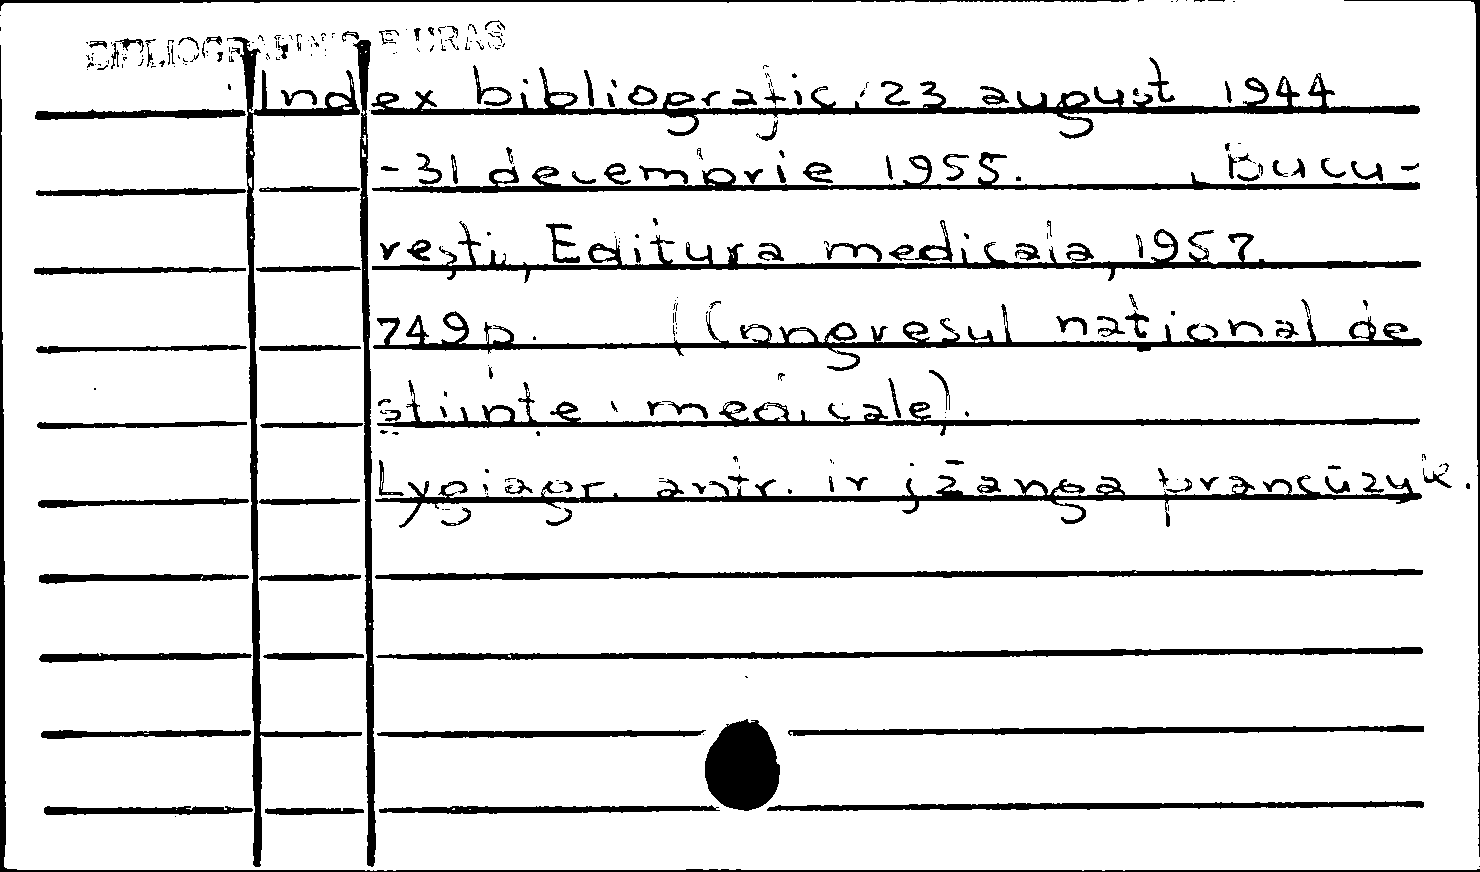 BIBLIOGRAFINIS BIURAS
Index bibliografic, 23 august 1944
-31 decembrie 1955. , Bucu-
rești, Editura medicala, 1957.
749 p. (Congresul național de
științe medicale).
Lygiagr. antr. ir įžanga prancūzų k.